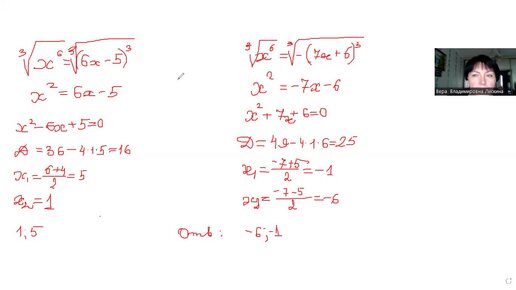 ∛x⁶ = ∛(6x-5)³
x² = 6x-5
x²-6x+5=0
D = 36-4·1·5=16
x₁ = (6+4)/2 = 5
x₂ = 1
1, 5
∛x⁶ = ∛-(7x+6)³
x² = -7x-6
x²+7x+6=0
D = 49-4·1·6=25
x₁ = (-7+5)/2 = -1
x₂ = (-7-5)/2 = -6
Отв: -6; -1
Вера Владимировна Ляхина